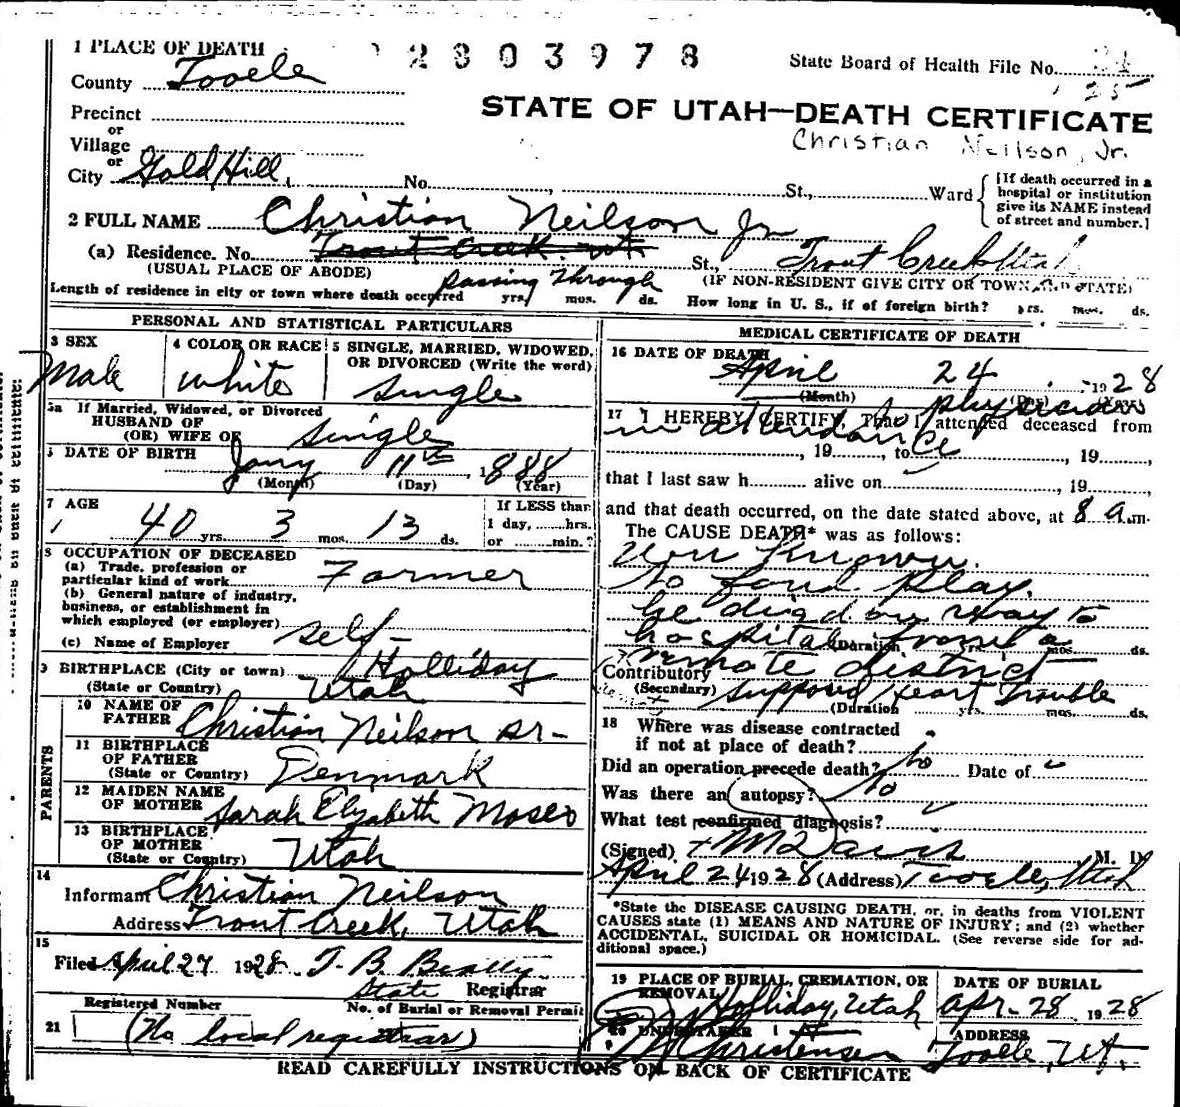 1 PLACE OF DEATH
2803978
State Board of Health File No.
County Tooele
35
STATE OF UTAH—DEATH CERTIFICATE
Christian Neilson, Jr.
Precinct
or
Village
or
City Gold Hill, No. , St., Ward
[If death occurred in a
hospital or institution
give its NAME instead
of street and number.]
2 FULL NAME Christian Neilson Jr
(a) Residence. No. Trout Creek. Ut St., Trout Creek Utah
(USUAL PLACE OF ABODE) (IF NON-RESIDENT GIVE CITY OR TOWN AND STATE)
Length of residence in city or town where death occurred Passing Through yrs. mos. ds. How long in U. S., if of foreign birth? yrs. mos. ds.
PERSONAL AND STATISTICAL PARTICULARS
3 SEX
Male
4 COLOR OR RACE
white
5 SINGLE, MARRIED, WIDOWED,
OR DIVORCED (Write the word)
Single
5a If Married, Widowed, or Divorced
HUSBAND OF
(OR) WIFE OF Single
6 DATE OF BIRTH
Jany 11th 1888
(Month) (Day) (Year)
7 AGE
40 yrs. 3 mos. 13 ds.
If LESS than
1 day, hrs.
or min.?
8 OCCUPATION OF DECEASED
(a) Trade, profession or
particular kind of work Farmer
(b) General nature of industry,
business, or establishment in
which employed (or employer)
(c) Name of Employer self-
9 BIRTHPLACE (City or town) Holliday
(State or Country) Utah
PARENTS
10 NAME OF
FATHER Christian Neilson Sr-
11 BIRTHPLACE
OF FATHER
(State or Country) Denmark
12 MAIDEN NAME
OF MOTHER Sarah Elizabeth Moses
13 BIRTHPLACE
OF MOTHER
(State or Country) Utah
14
Informant Christian Neilson
Address Trout Creek, Utah
15
Filed April 27 1928 T. B. Beatty
State Registrar
Registered Number No. of Burial or Removal Permit
21 (No local registrar)
MEDICAL CERTIFICATE OF DEATH
16 DATE OF DEATH
April 24 1928
(Month) (Day) (Year)
17 I HEREBY CERTIFY, That I attended deceased from
No physician in attendance
, 19 , to , 19
that I last saw h alive on , 19 ,
and that death occurred, on the date stated above, at 8 a.m.
The CAUSE DEATH* was as follows:
Un Known.
No foul play.
he died on way to
hospital from a
(Duration yrs. mos. ds.
remote district
Contributory
(Secondary) Supposed Heart Trouble
(Duration yrs. mos. ds.
18 Where was disease contracted
if not at place of death?
Did an operation precede death? No Date of
Was there an autopsy? No
What test confirmed diagnosis?
(Signed) M Davis M. D.
April 24 1928 (Address) Tooele, Utah
*State the DISEASE CAUSING DEATH, or, in deaths from VIOLENT
CAUSES state (1) MEANS AND NATURE OF INJURY; and (2) whether
ACCIDENTAL, SUICIDAL OR HOMICIDAL. (See reverse side for ad-
ditional space.)
19 PLACE OF BURIAL, CREMATION, OR
REMOVAL
Holliday, Utah
DATE OF BURIAL
Apr-28 1928
20 UNDERTAKER
Christensen
ADDRESS
Tooele, Ut.
READ CAREFULLY INSTRUCTIONS ON BACK OF CERTIFICATE